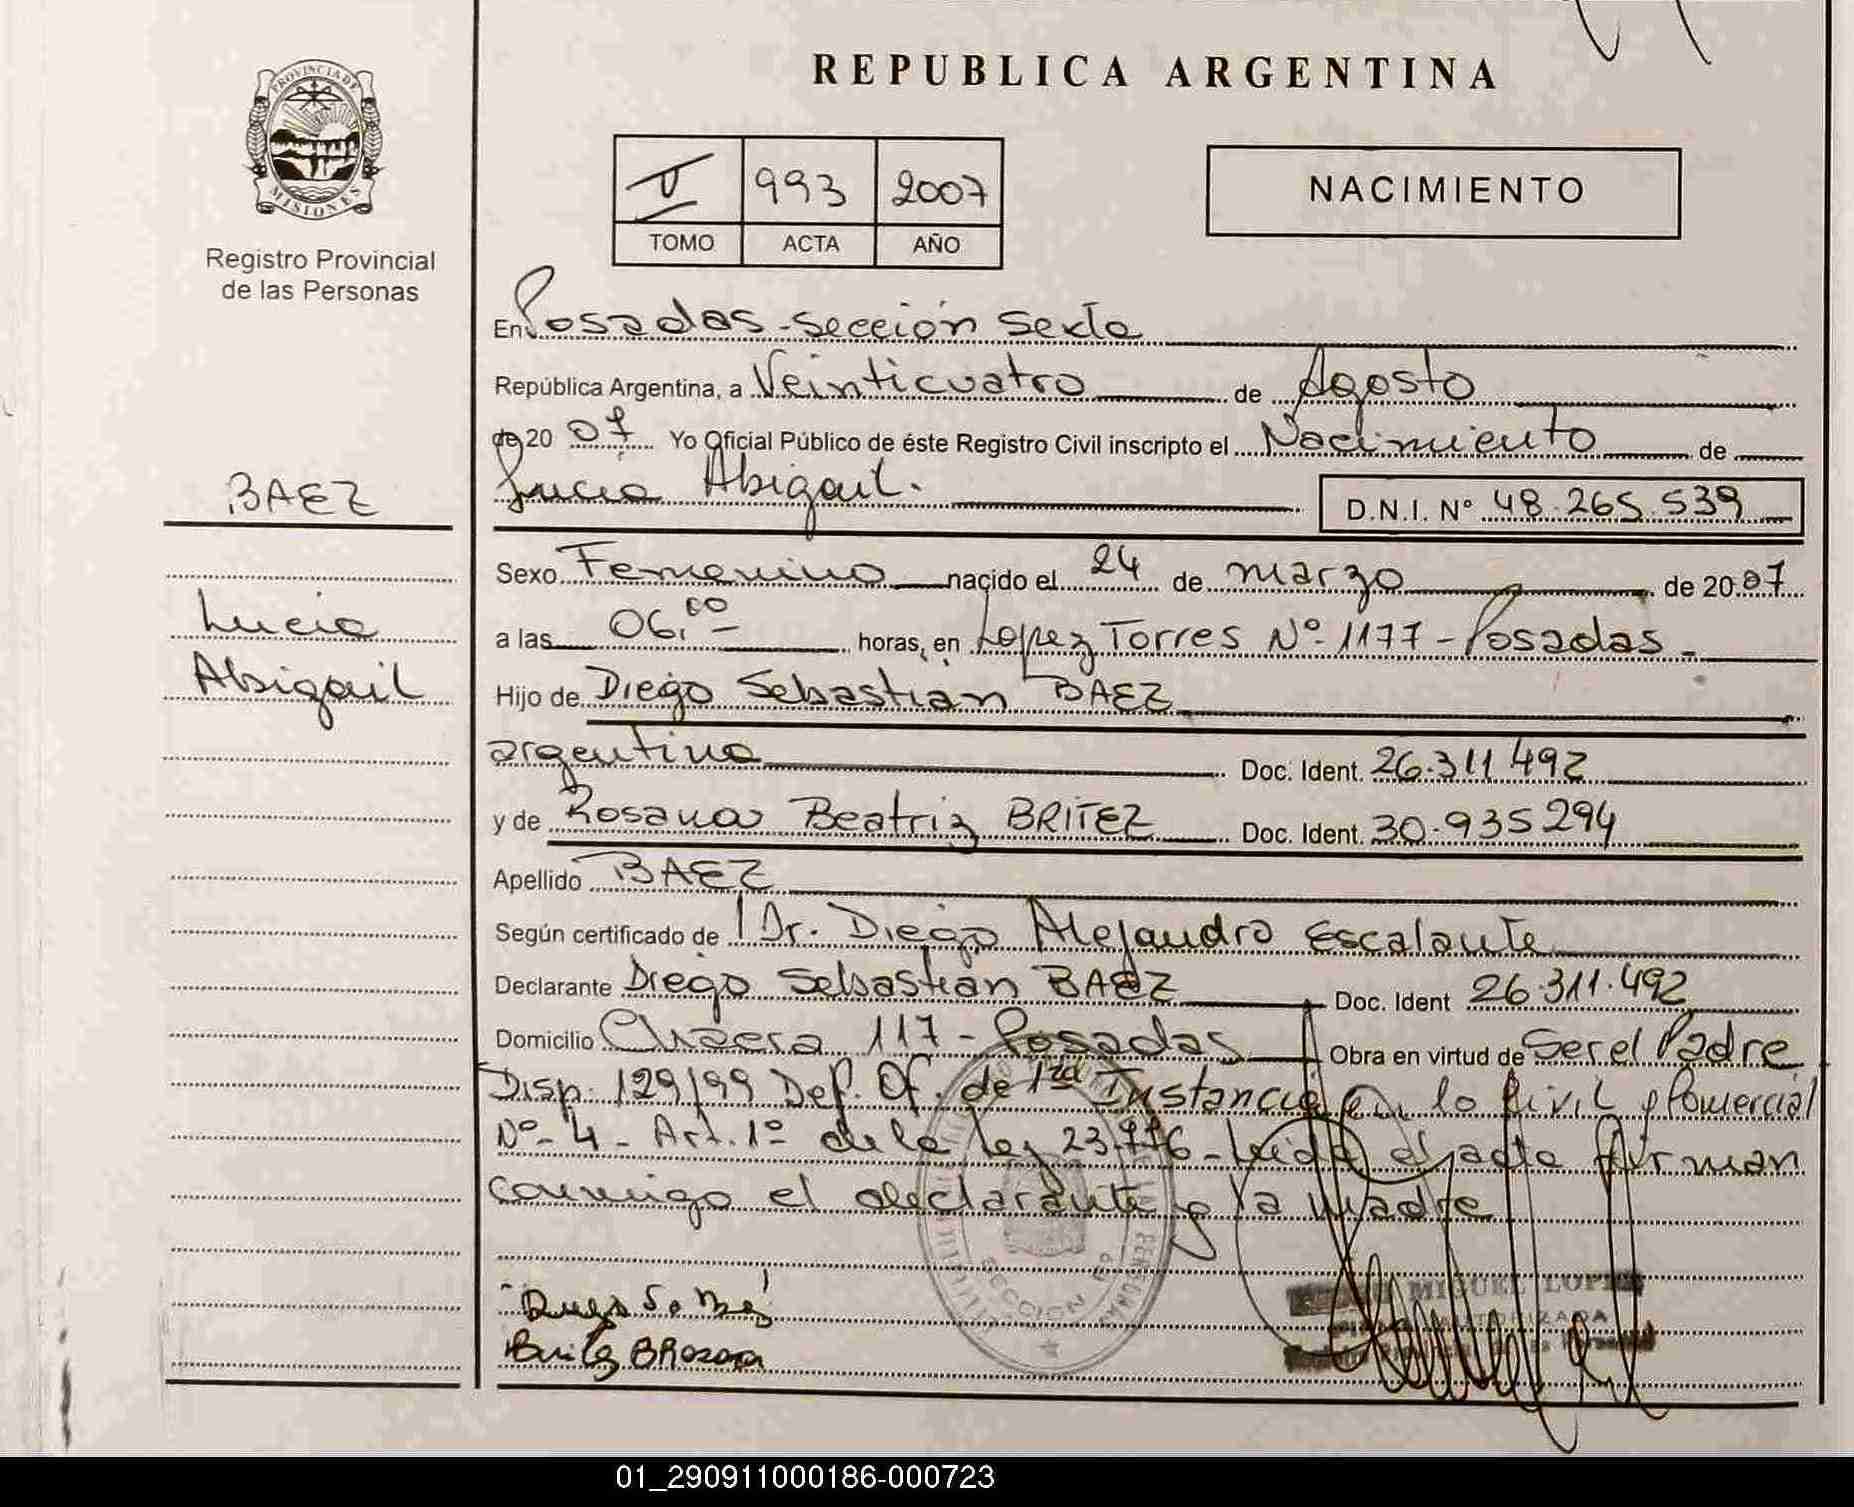 REPUBLICA ARGENTINA
PROVINCIA DE
MISIONES
Registro Provincial
de las Personas
V 993 2007
TOMO ACTA AÑO
NACIMIENTO
En Posadas - sección sexta
República Argentina, a Veinticuatro de Agosto
de 20 07 Yo Oficial Público de éste Registro Civil inscripto el Nacimiento de
Lucia Abigail.
D.N.I. Nº 48.265.539
BAEZ
Lucia
Abigail
Sexo Femenino nacido el 24 de marzo de 20 07
a las 06,00 horas, en Lopez Torres Nº 1177 - Posadas -
Hijo de Diego Sebastian BAEZ
argentino Doc. Ident. 26.311.492
y de Rosana Beatriz BRITEZ Doc. Ident. 30.935294
Apellido BAEZ
Según certificado de Dr. Diego Alejandro Escalante
Declarante Diego Sebastian BAEZ Doc. Ident 26.311.492
Domicilio Chacra 117 - Posadas Obra en virtud de Ser el Padre
Disp. 129/99 Def. Of. de 1ra Instancia en lo Civil y Comercial
Nº 4 - Art. 1º de la Ley 23.776 - Leida el acta firman
conmigo el declarante y la madre
SECCION
MIGUEL LOPEZ
Britez B Rosana
01_290911000186-000723